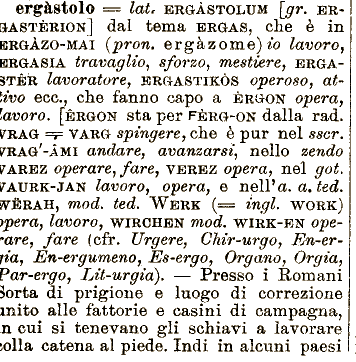 ergàstolo = lat. ERGÀSTOLUM [gr. ER-
GASTÈRION] dal tema ERGAS, che è in
ERGÀZO-MAI (pron. ergàzome) io lavoro,
ERGASIA travaglio, sforzo, mestiere, ERGA-
STÈR lavoratore, ERGASTIKÒS operoso, at-
tivo ecc., che fanno capo a ÈRGON opera,
lavoro. [ÈRGON sta per FÈRG-ON dalla rad.
VRAG = VARG spingere, che è pur nel sscr.
VRAG'-ÂMI andare, avanzarsi, nello zendo
VAREZ operare, fare, VEREZ opera, nel got.
VAURK-JAN lavoro, opera, e nell'a. a. ted.
WËRAH, mod. ted. WERK (= ingl. WORK)
opera, lavoro, WIRCHEN mod. WIRK-EN ope-
rare, fare (cfr. Urgere, Chir-urgo, En-er-
gia, En-ergumeno, Es-ergo, Organo, Orgia,
Par-ergo, Lit-urgia). — Presso i Romani
Sorta di prigione e luogo di correzione
unito alle fattorie e casini di campagna,
in cui si tenevano gli schiavi a lavorare
colla catena al piede. Indi in alcuni paesi